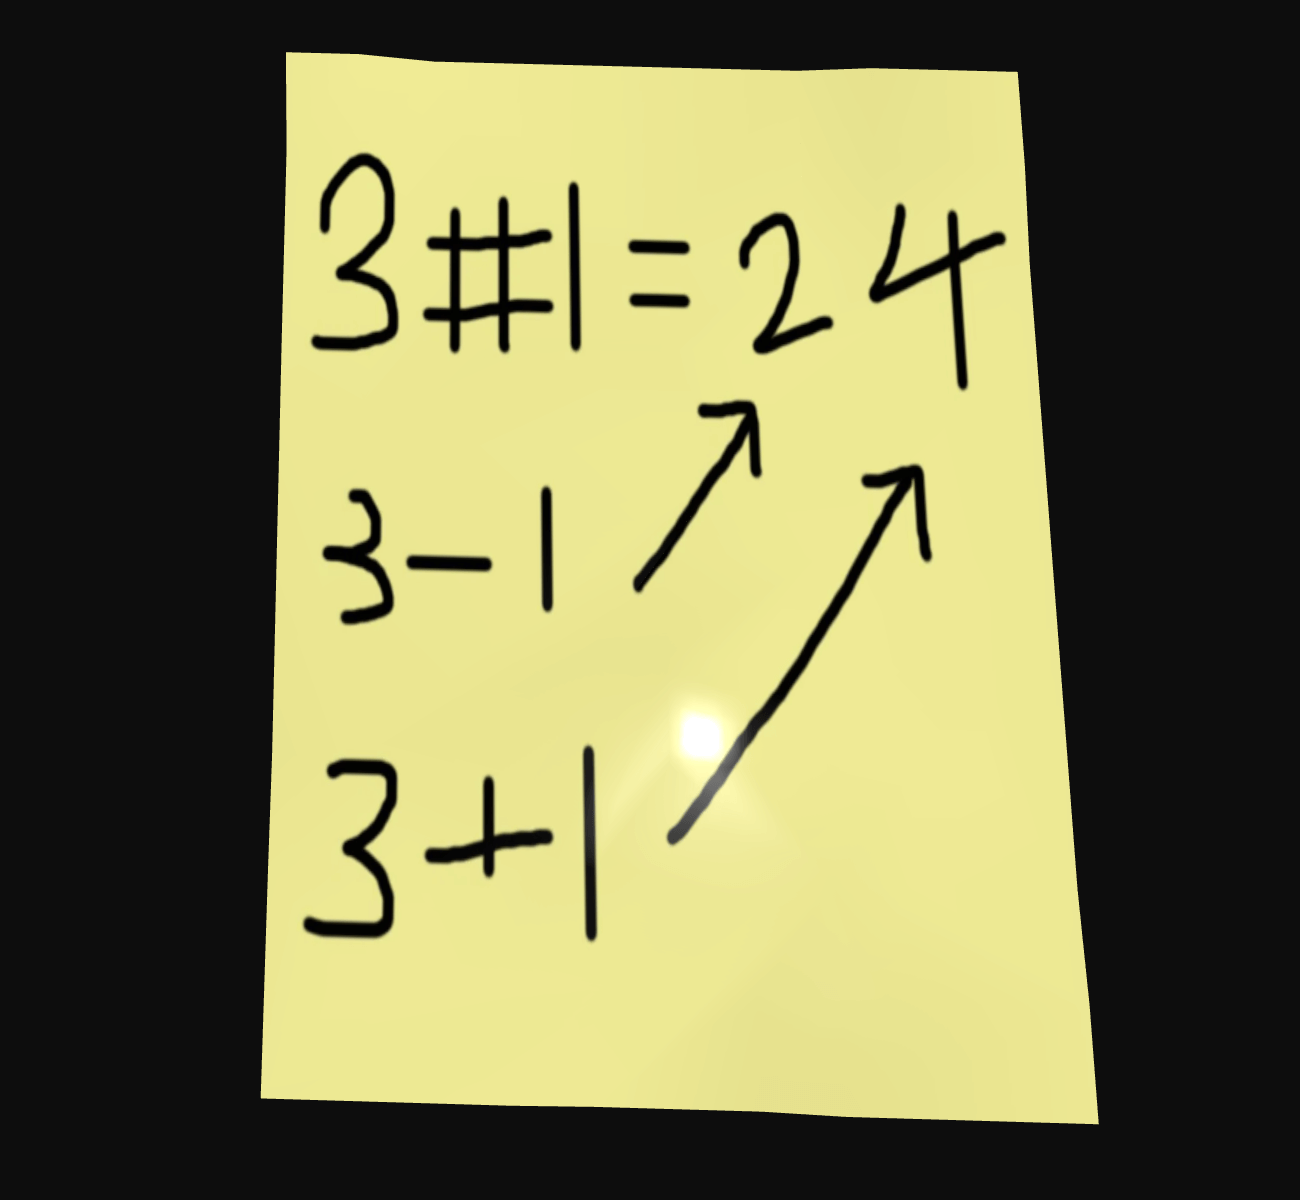 3#1=24
3-1
3+1